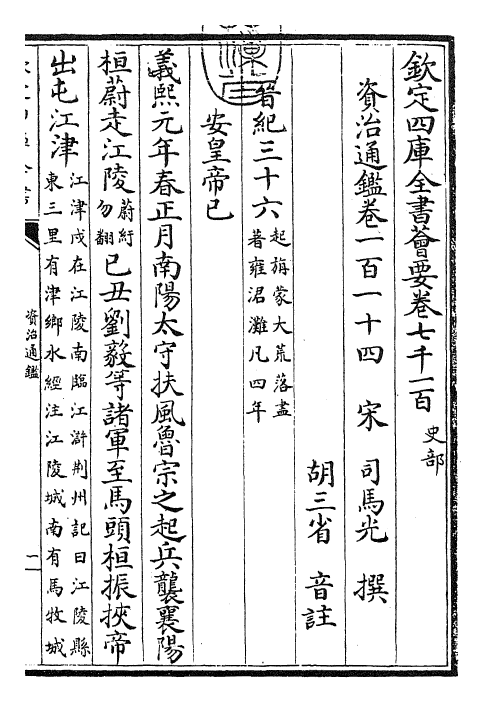 欽定四庫全書薈要卷七千一百
史部
資治通鑑卷一百一十四　宋　司馬光　撰
胡三省　音註
晉紀三十六
起旃蒙大荒落盡
著雍涒灘凡四年
安皇帝己
義熙元年春正月南陽太守扶風魯宗之起兵襲襄陽
桓蔚走江陵
蔚紆
勿翻
己丑劉毅等諸軍至馬頭桓振挾帝
出屯江津
江津戍在江陵南臨江滸荆州記曰江陵縣
東三里有津鄉水經注江陵城南有馬牧城
資治通鑑
一